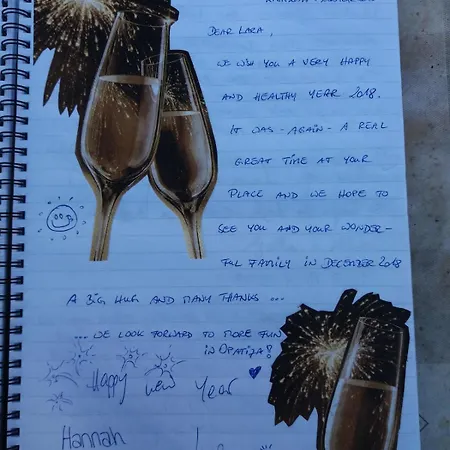 Dear Lara,
We wish you a very happy
and healthy year 2018.
It was - again - a real
great time at your
place and we hope to
see you and your wonder-
ful family in December 2018
A big hug and many thanks ...
... we look forward to more fun
in Opatija!
Happy new year
Hannah